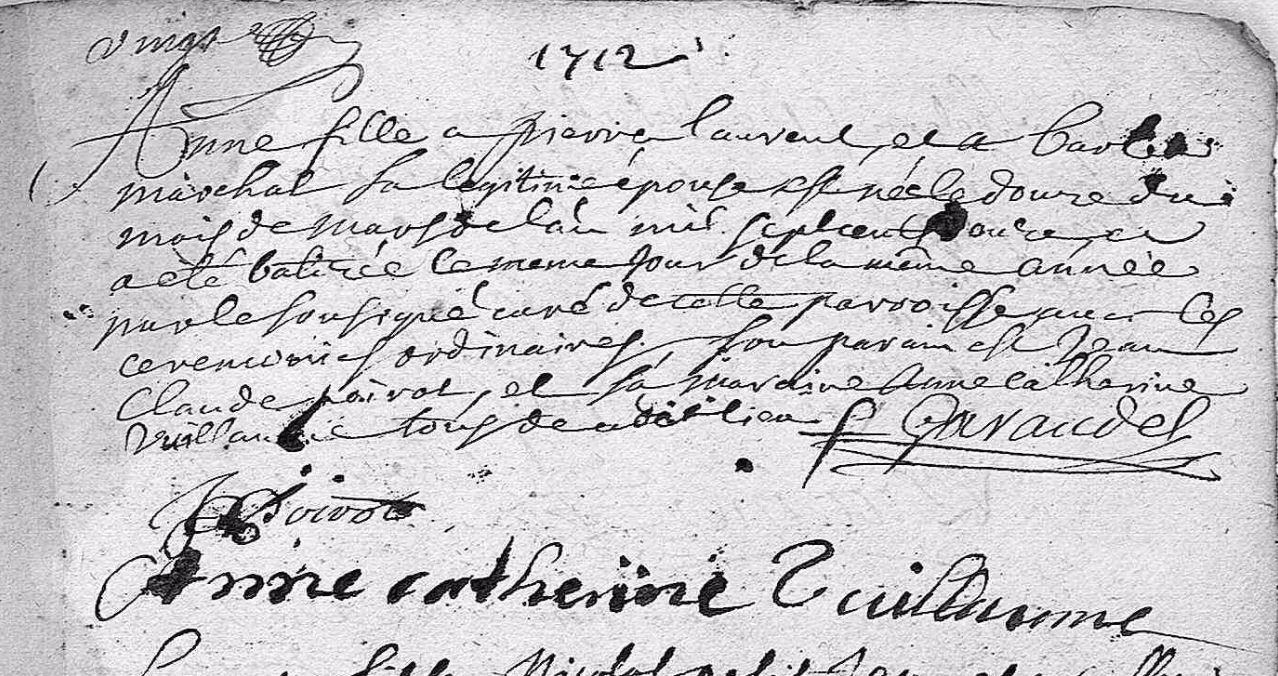 vingt
1712
Anne fille a pierre laurent, et a barbe
marchal sa legitime épouse est née le douze du
mois de mars de l'an mil sept cent douze, et
a été batizée le meme jour de la même année
par le sousigné curé de cette parroisse avec les
ceremonies ordinaires, son parain est Jean
Claude poirot, et sa maraine Anne catherine
Vuillaume tous de ce dit lieu Garaudel
J C poirot
Anne catherine Vuillaume
fille